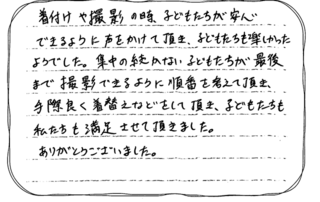 着付けや撮影の時、子どもたちが安心
できるように声をかけて頂き、子どもたちも楽しかった
ようでした。集中の続かない子どもたちが最後
まで撮影できるように順番を考えて頂き、
手際良く着替えなどをして頂き、子どもたちも
私たちも満足させて頂きました。
ありがとうございました。